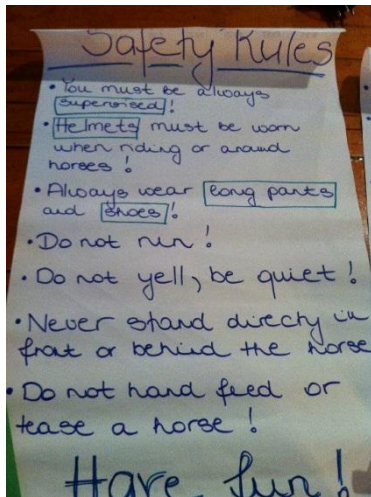 Safety Rules
• You must be always
supervised!
• Helmets must be worn
when riding or around
horses!
• Always wear long pants
and shoes!
• Do not run!
• Do not yell, be quiet!
• Never stand directly in
front or behind the horse
• Do not hand feed or
tease a horse!
Have fun!